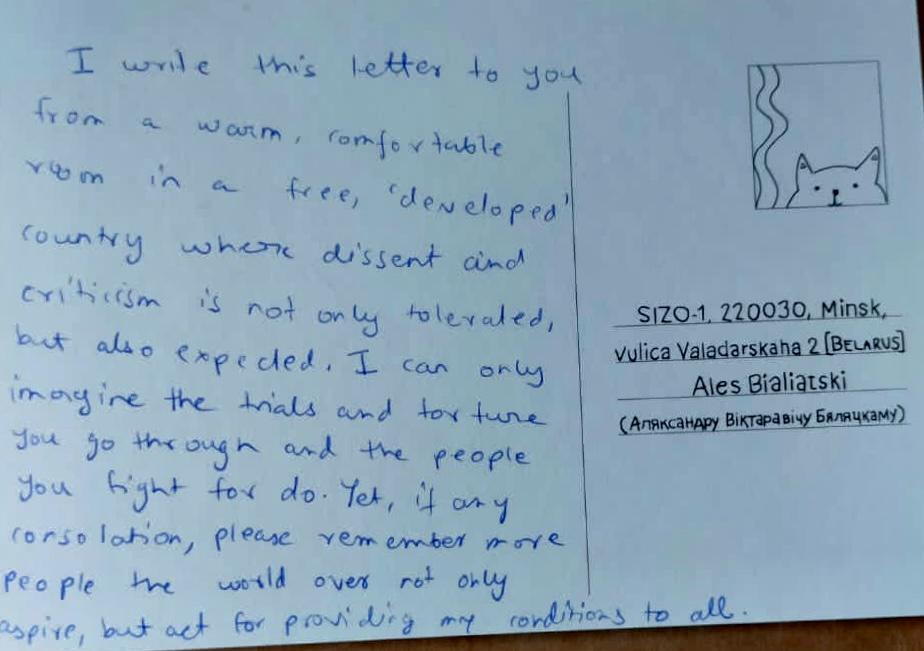 I write this letter to you
from a warm, comfortable
room in a free, 'developed'
country where dissent and
criticism is not only tolerated,
but also expected. I can only
imagine the trials and torture
you go through and the people
you fight for do. Yet, if any
consolation, please remember more
people the world over not only
aspire, but act for providing my conditions to all.
SIZO-1, 220030, Minsk,
Vulica Valadarskaha 2 [BELARUS]
Ales Bialiatski
(Аляксандру Віктаравічу Бяляцкаму)